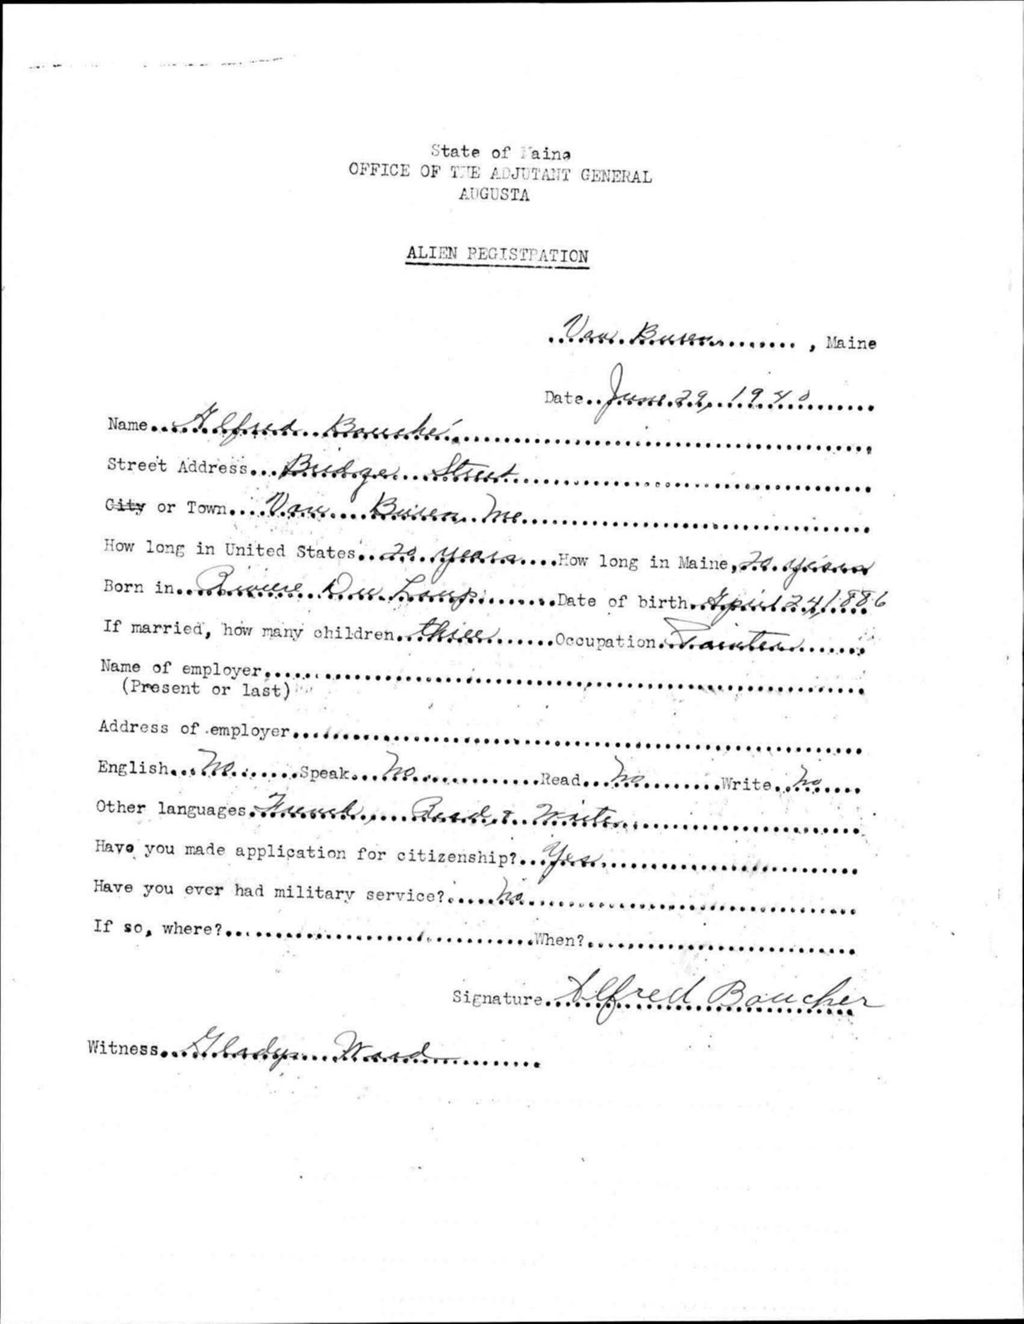 State of Maine
OFFICE OF THE ADJUTANT GENERAL
AUGUSTA
ALIEN REGISTRATION
Van Buren, Maine
Date June 29, 1940
Name Alfred Bouché
Street Address Bridge Street
City or Town Van Buren, Me
How long in United States 20 years How long in Maine 20 years
Born in Riviere Du Loup Date of birth April 24, 1886
If married, how many children three Occupation Painter
Name of employer
(Present or last)
Address of employer
English No Speak No Read No Write No
Other languages French, Read & Write
Have you made application for citizenship? Yes
Have you ever had military service? No
If so, where? When?
Signature Alfred Boucher
Witness Gladys Ward